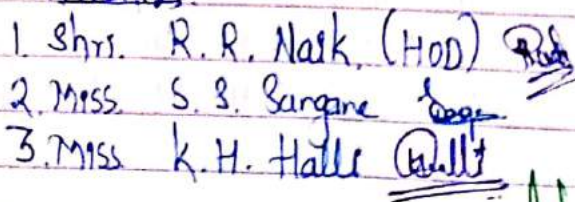 1. Shri. R. R. Naik. (HOD)
2. Miss. S. S. Sangane
3. Miss K. H. Halli